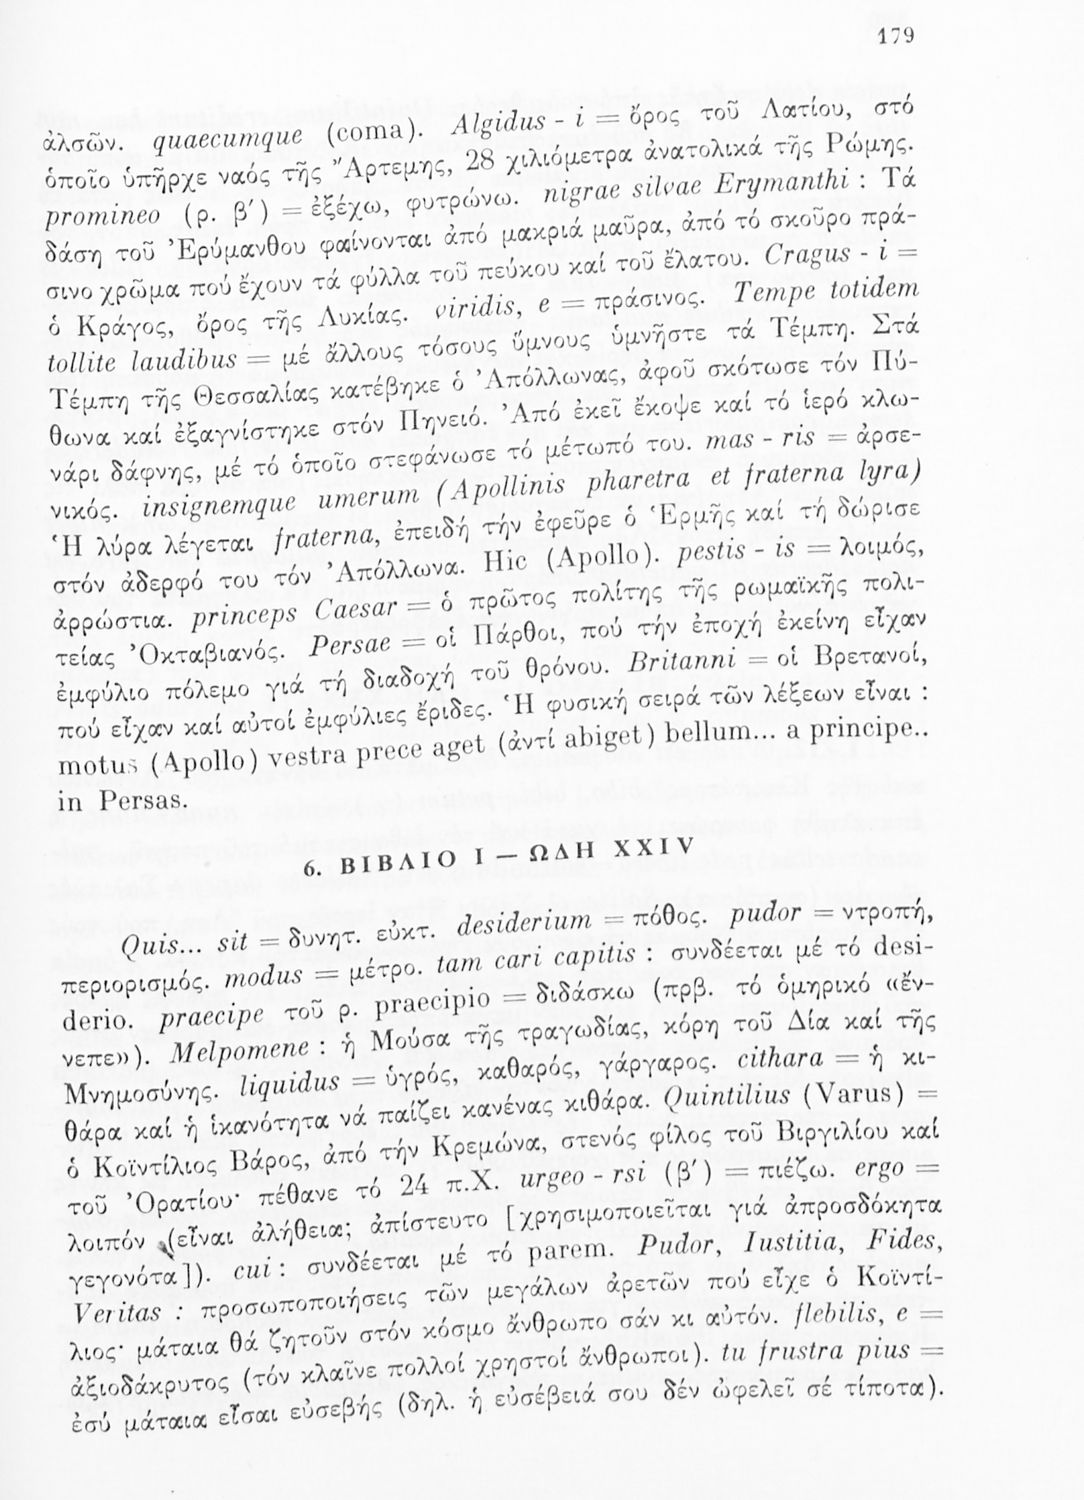 179
ἀλσῶν. quaecumque (coma). Algidus - i = ὄρος τοῦ Λατίου, στό
ὁποῖο ὑπῆρχε ναός τῆς Ἄρτεμης, 28 χιλιόμετρα ἀνατολικά τῆς Ρώμης.
promineo (ρ. β′) = ἐξέχω, φυτρώνω. nigrae silvae Erymanthi : Τά
δάση τοῦ Ἐρύμανθου φαίνονται ἀπό μακριά μαῦρα, ἀπό τό σκοῦρο πρά-
σινο χρῶμα πού ἔχουν τά φύλλα τοῦ πεύκου καί τοῦ ἔλατου. Cragus - i =
ὁ Κράγος, ὄρος τῆς Λυκίας. viridis, e = πράσινος. Tempe totidem
tollite laudibus = μέ ἄλλους τόσους ὕμνους ὑμνῆστε τά Τέμπη. Στά
Τέμπη τῆς Θεσσαλίας κατέβηκε ὁ Ἀπόλλωνας, ἀφοῦ σκότωσε τόν Πύ-
θωνα καί ἐξαγνίστηκε στόν Πηνειό. Ἀπό ἐκεῖ ἔκοψε καί τό ἱερό κλω-
νάρι δάφνης, μέ τό ὁποῖο στεφάνωσε τό μέτωπό του. mas - ris = ἀρσε-
νικός. insignemque umerum (Apollinis pharetra et fraterna lyra)
Ἡ λύρα λέγεται fraterna, ἐπειδή τήν ἐφεῦρε ὁ Ἑρμῆς καί τή δώρισε
στόν ἀδερφό του τόν Ἀπόλλωνα. Hic (Apollo). pestis - is = λοιμός,
ἀρρώστια. princeps Caesar = ὁ πρῶτος πολίτης τῆς ρωμαϊκῆς πολι-
τείας Ὀκταβιανός. Persae = οἱ Πάρθοι, πού τήν ἐποχή ἐκείνη εἶχαν
ἐμφύλιο πόλεμο γιά τή διαδοχή τοῦ θρόνου. Britanni = οἱ Βρετανοί,
πού εἶχαν καί αὐτοί ἐμφύλιες ἔριδες. Ἡ φυσική σειρά τῶν λέξεων εἶναι :
motus (Apollo) vestra prece aget (ἀντί abiget) bellum... a principe..
in Persas.
6. ΒΙΒΛΙΟ I — ΩΔΗ XXIV
Quis... sit = δυνητ. εὐκτ. desiderium = πόθος. pudor = ντροπή,
περιορισμός. modus = μέτρο. tam cari capitis : συνδέεται μέ τό desi-
derio. praecipe τοῦ ρ. praecipio = διδάσκω (πρβ. τό ὁμηρικό «ἔν-
νεπε»). Melpomene : ἡ Μούσα τῆς τραγωδίας, κόρη τοῦ Δία καί τῆς
Μνημοσύνης. liquidus = ὑγρός, καθαρός, γάργαρος. cithara = ἡ κι-
θάρα καί ἡ ἱκανότητα νά παίζει κανένας κιθάρα. Quintilius (Varus) =
ὁ Κοϊντίλιος Βάρος, ἀπό τήν Κρεμώνα, στενός φίλος τοῦ Βιργιλίου καί
τοῦ Ὁρατίου· πέθανε τό 24 π.Χ. urgeo - rsi (β′) = πιέζω. ergo =
λοιπόν (εἶναι ἀλήθεια; ἀπίστευτο [χρησιμοποιεῖται γιά ἀπροσδόκητα
γεγονότα]). cui : συνδέεται μέ τό parem. Pudor, Iustitia, Fides,
Veritas : προσωποποιήσεις τῶν μεγάλων ἀρετῶν πού εἶχε ὁ Κοϊντί-
λιος· μάταια θά ζητοῦν στόν κόσμο ἄνθρωπο σάν κι αὐτόν. flebilis, e =
ἀξιοδάκρυτος (τόν κλαῖνε πολλοί χρηστοί ἄνθρωποι). tu frustra pius =
ἐσύ μάταια εἶσαι εὐσεβής (δηλ. ἡ εὐσέβειά σου δέν ὠφελεῖ σέ τίποτα).